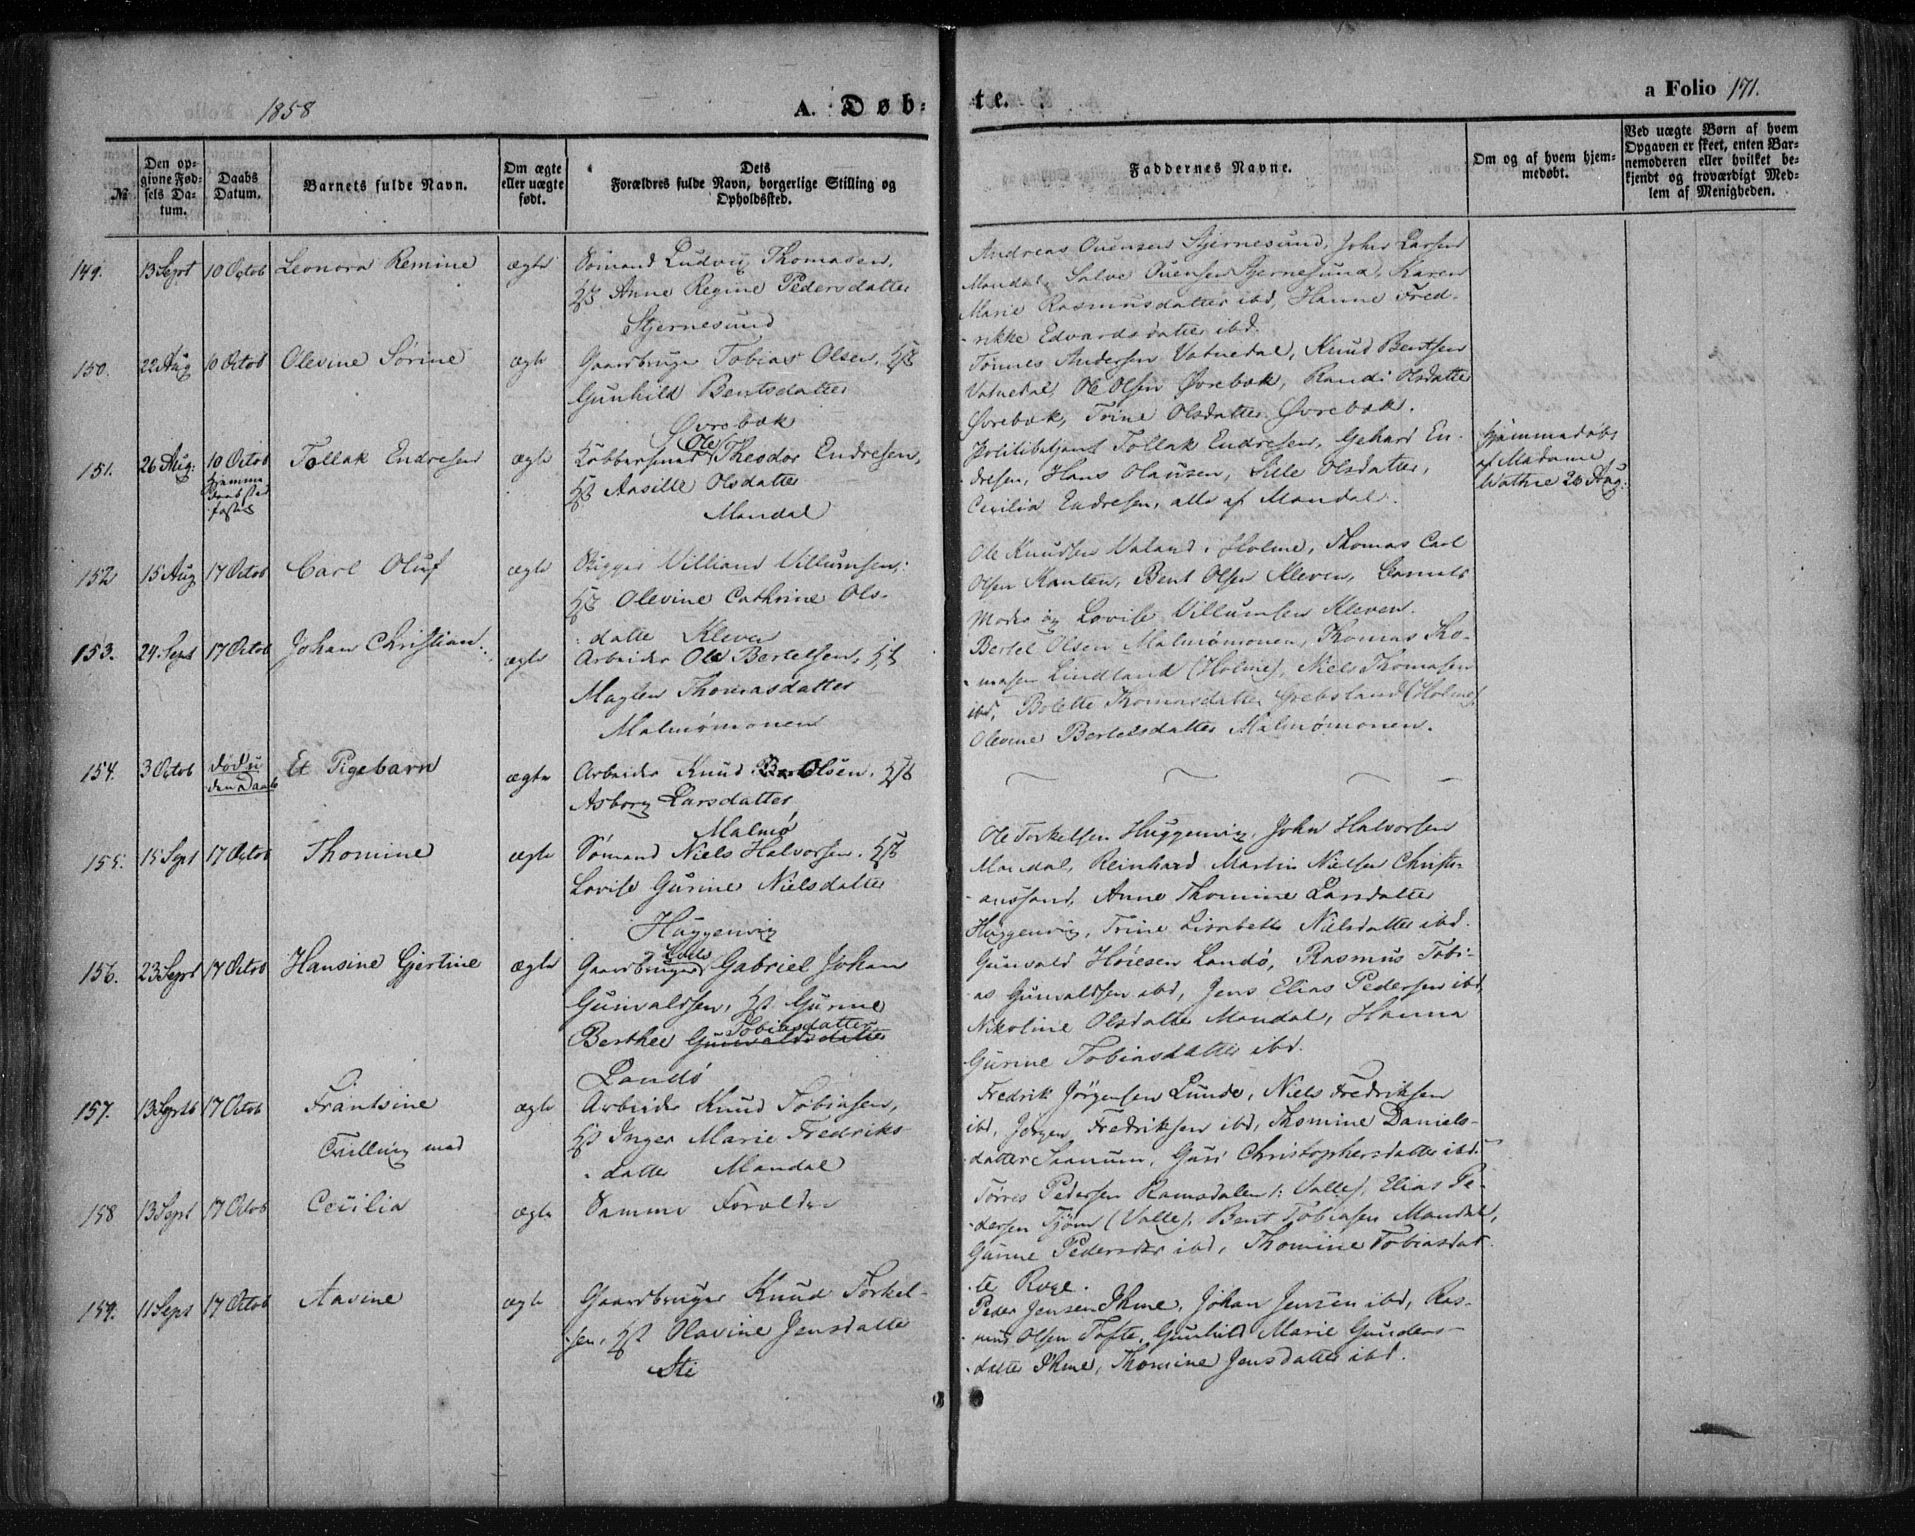 1858
A. Døb-
te.
a Folio 171.
№
Den op-
givne Fød-
sels Da-
tum.
Daabs
Datum.
Barnets fulde Navn.
Om ægte
eller uægte
født.
Dets
Forældres fulde Navn, borgerlige Stilling og
Opholdssted.
Faddernes Navne.
Om og af hvem hjem-
medøbt.
Ved uægte Børn af hvem
Opgaven er skeet, enten Bar-
nemoderen eller hvilket be-
kjendt og troværdigt Med-
lem af Menigheden.
149. 13 Sept 10 Octob Leonora Remine ægte Sømand Ludvig Thomasen,
Hst Anne Regine Pedersdatter
Stjernesund
Andreas Ouensen Stjernesund, John Larsen
Mandal, Salve Ouensen Stjernesund, Karen
Marie Rasmusdatter ibd, Hanne Fred-
rikke Edvardsdatter ibd.
150. 22 Aug 10 Octob Olevine Sørine ægte Gaardbruger Tobias Olsen, Hst
Gunhild Bentsdatter
Øvrebæk
Tønnes Andersen Vatnedal, Knud Bentsen
Vatnedal, Ole Olsen Øvrebæk, Randi Olsdatter
Øvrebæk, Trine Olsdatter Øvrebæk.
151. 26 Aug: 10 Octob Tollak Endresen ægte Kobbersmed Ole Theodor Endresen,
Hjemme
Daab stad
fæstet
Hst Aasille Olsdatter
Mandal
Politibetjent Tollak Endresen, Gehard En-
dresen, Hans Olausen, Sille Olsdatter,
Cecilia Endresen, alle af Mandal.
Hjemmedøbt
af Madame
Wathne 26 Aug:
152 15 Aug 17 Octob Carl Oluf ægte Rigger Villiam Villumsen:
Hst Olevine Cathrine Ols-
datte Kleven
Ole Knudsen Valand i Holme, Thomas Carl
Olsen Kanten, Bent Olsen Kleven, Barnets
Moder og Lovise Villumsen Kleven.
153. 24 Sept 17 Octob Johan Christian ægte Arbeider Ole Bertelsen, Hst
Maglen Thomasdatter
Malmømonen
Bertel Olsen Malmømonen, Thomas Tho-
masen Lindland (Holme), Niels Thomasen
ibd, Bolette Thomasdatter Grebsland (Holme)
Olevine Bertelsdatter Malmømonen.
154. 3 Octob død u
den Daab Et Pigebarn ægte Arbeider Knud Olsen, Hst
Asborg Larsdatter
Malmø
155. 15 Sept 17 Octob Thomine ægte Sømand Niels Halvorsen, Hst
Lovise Gurine Nielsdatter
Huggenvig
Ole Torkelsen Huggenvig, John Halvorsen
Mandal, Reinhard Martin Nielsen Christi-
anssand, Anne Thomine Larsdatter
Huggenvig, Trine Lisabeth Nielsdatter ibd.
156. 23 Sept 17 Octob Hansine Gjertine ægte Gaardbruger Gabriel Johan
Gunvaldsen, Hst Gurine
Berthee Gunvaldsdatter Tobiasdatter
Landø
Gunvald Høiesen Landø, Rasmus Tobi-
as Gunvaldsen ibd, Jens Elias Pedersen ibd,
Nikoline Olsdatter Mandal, Hanna
Gurine Tobiasdatter ibd.
157. 13 Septb 17 Octob Frantsine
Tvilling med ægte Arbeider Knud Tobiasen,
Hst Inger Marie Fredriks-
datte Mandal
Fredrik Jörgensen Lunde, Niels Fredriksen
ibd, Jörgen Fredriksen ibd, Thomine Daniels-
datter Saanum, Guri Christophersdatter ibd.
158 13 Sept 17 Octob Cecilia ægte Samme Forældre
Tørres Pedersen Ramsdalen (: Valle), Elias Pe-
dersen Tjøm (Valle), Bent Tobiasen Mandal,
Gunne Pedersdtr ibd, Thomine Tobiasdat-
te Roge.
159. 11 Sept 17 Octob Aasine ægte Gaardbruger Knud Torkel-
sen, Hst Olavine Jensdatte
Sti
Peder Jensen Ihme, Johan Jensen ibd, Ras-
mus Olsen Tofte, Gunhild Marie Gunders-
datte Ihme, Thomine Jensdatter ibd.